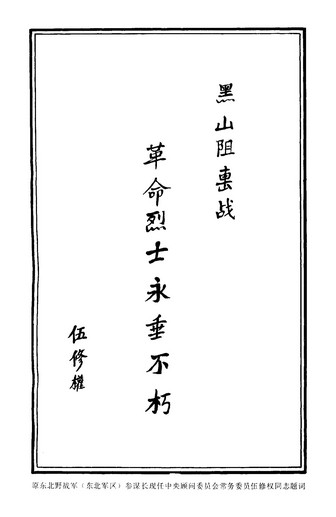 黑山阻击战
革命烈士永垂不朽
伍修權
原东北野战军（东北军区）参谋长现任中央顾问委员会常务委员伍修权同志题词